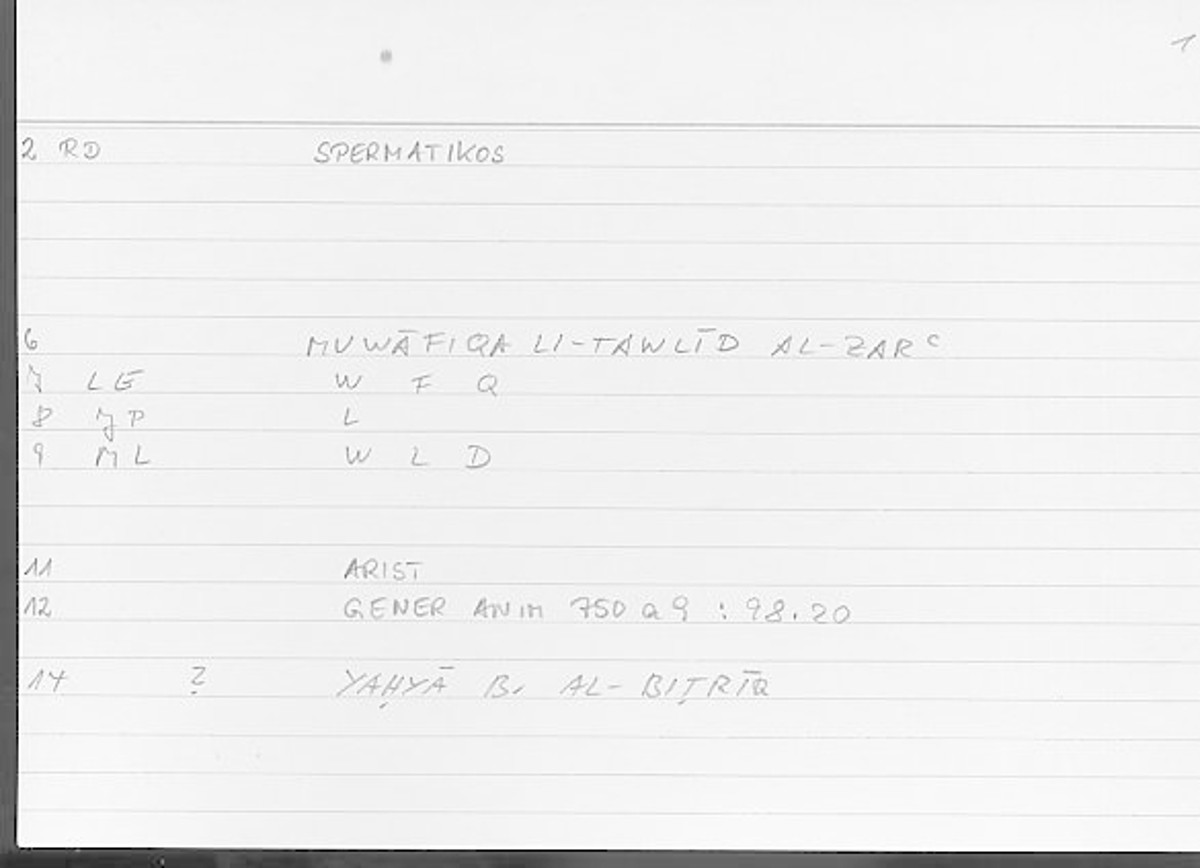 1
2 RD SPERMATIKOS
6 MUWĀFIQA LI-TAWLĪD AL-ZARᶜ
7 LE W F Q
8 JP L
9 ML W L D
11 ARIST
12 GENER ANIM 750 a 9 : 98.20
14 ? YAḤYĀ B. AL-BIṬRĪQ